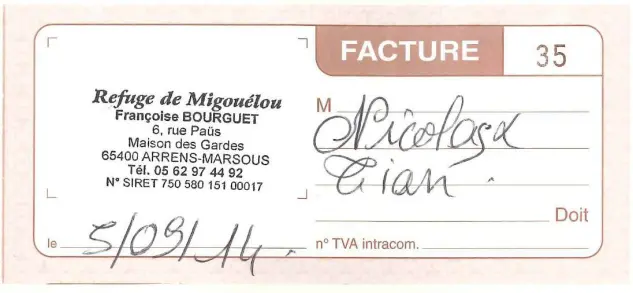 FACTURE 35
Refuge de Migouélou
Françoise BOURGUET
6, rue Paüs
Maison des Gardes
65400 ARRENS-MARSOUS
Tél. 05 62 97 44 92
N° SIRET 750 580 151 00017
M Nicolas &
Tian.
Doit
le 5/09/14.
n° TVA intracom.